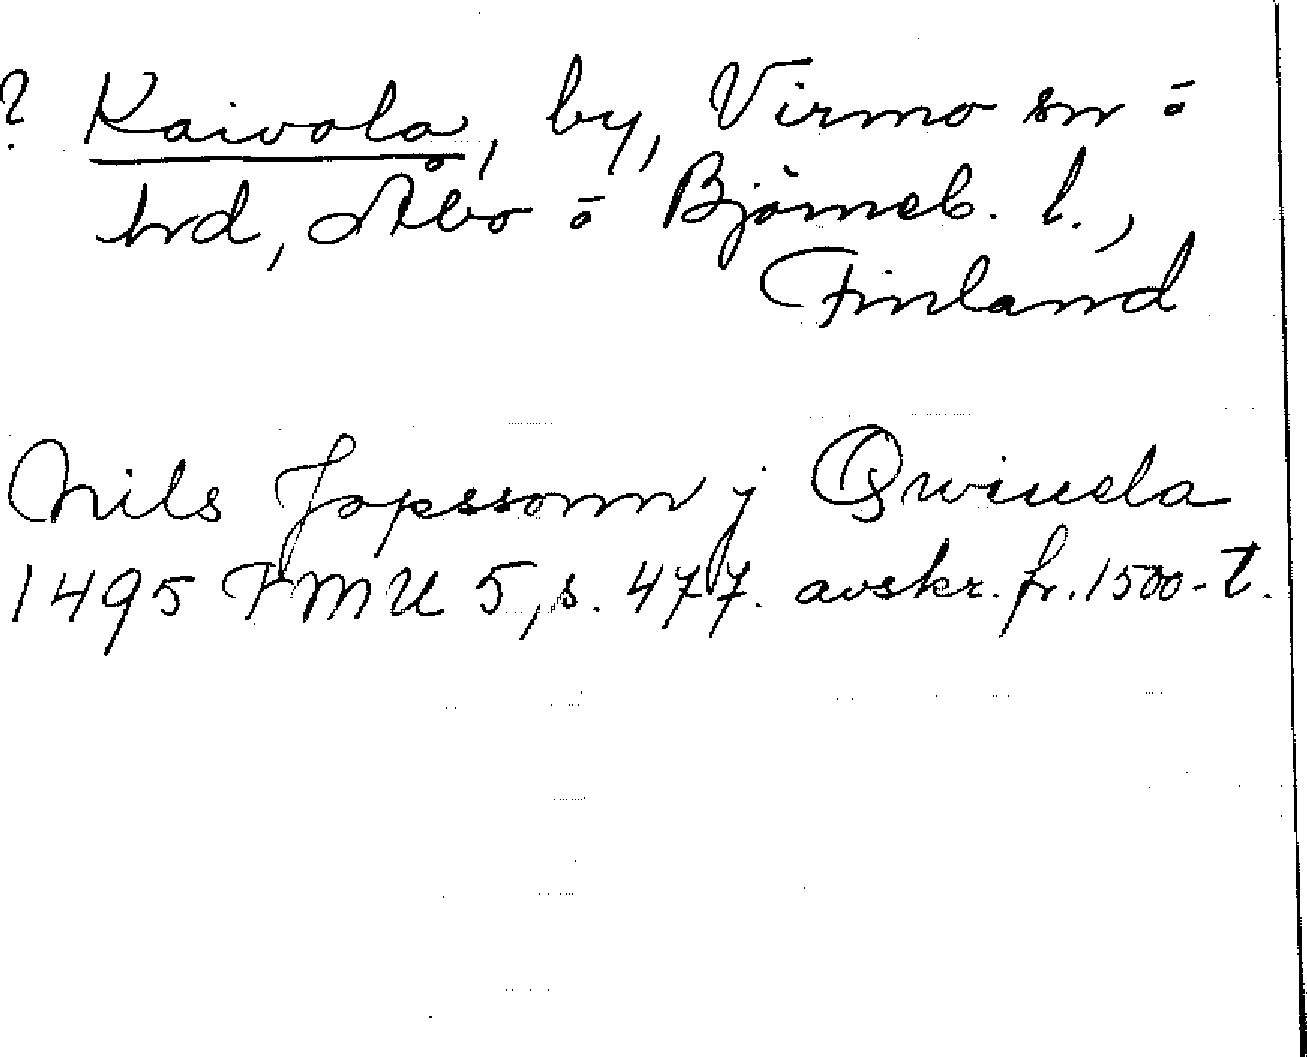 ? Kaivola, by, Virmo sn o
hrd, Åbo o Björneb. l.,
Finland
Nils Jopssonn j Qwiuela
1495 FMU 5, s. 477. avskr. fr. 1500-t.